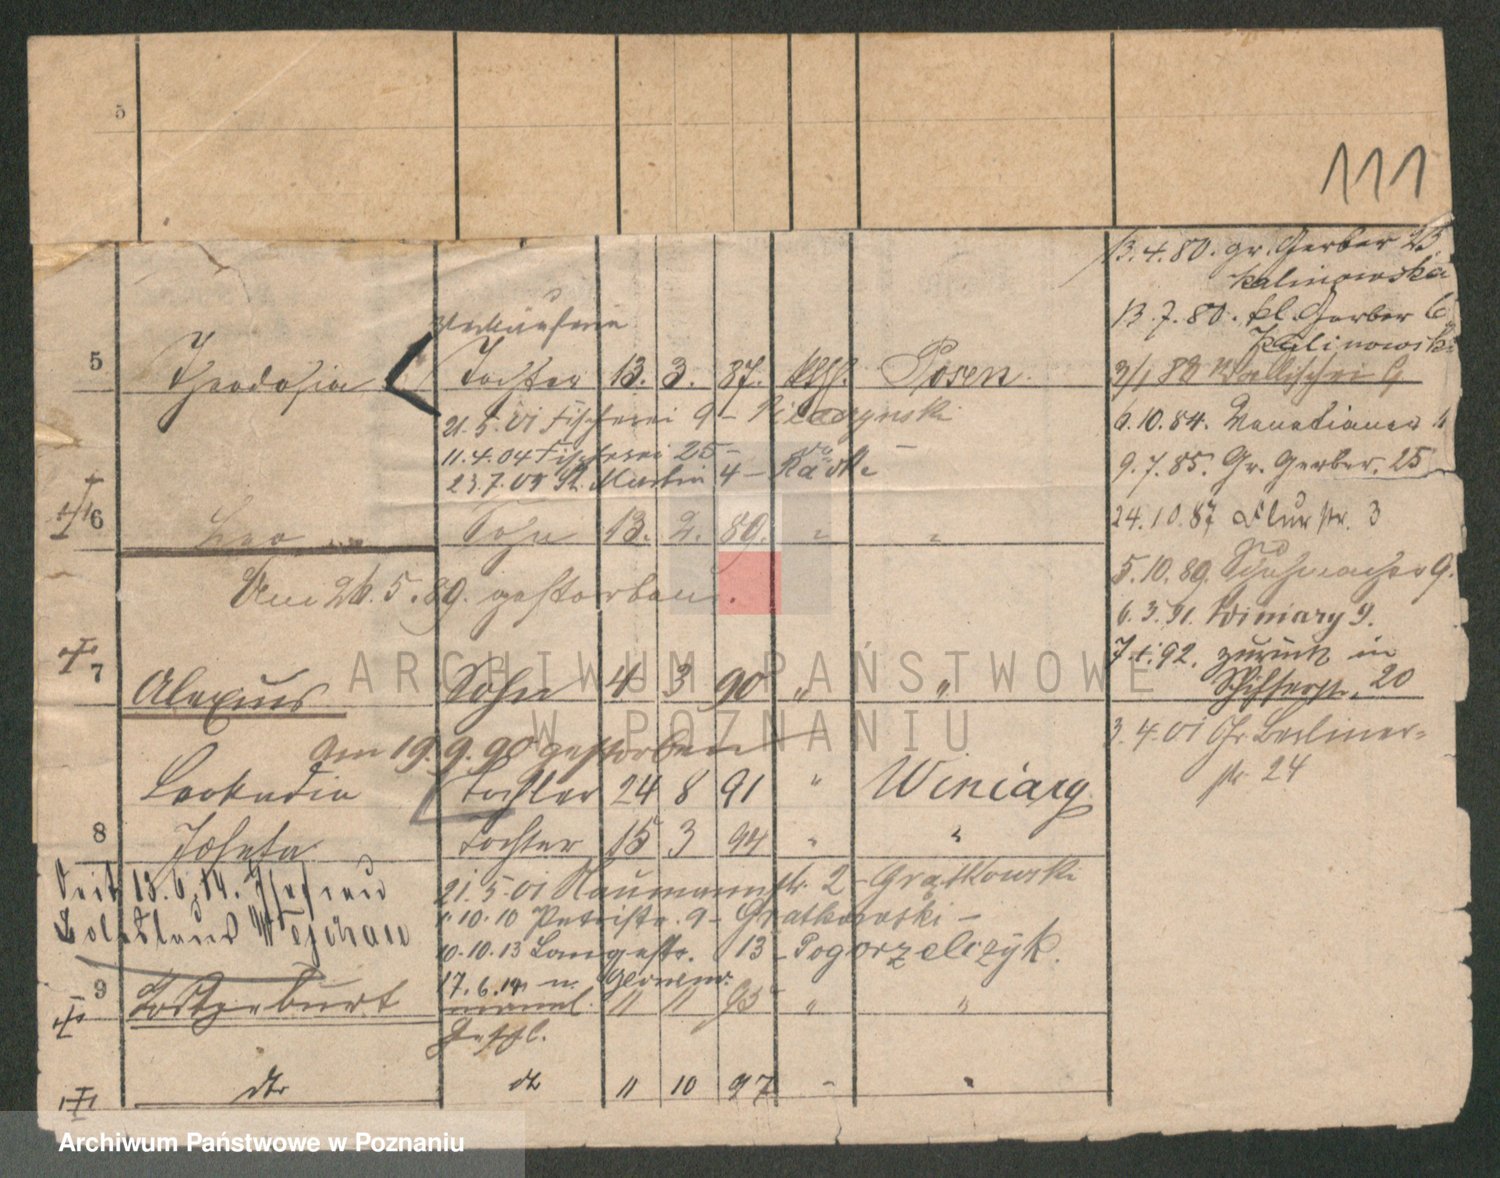 5
111
13.4.80. gr. Gerber 23
Kalinowska
13.7.80. kl. Gerber 6
Kalinowski
Verkäuferin
5 Theodosia Tochter 13. 3. 87. kth. Posen
3/1 82 Wallischei
21.5.01 Fischerei 9 -
6.10.84. Venetianer
11.4.04 Fischerei 25 -
9.7.85. Gr. Gerber. 25
23.7.05 St. Martin 4 -
6 Leo Sohn 13. 2. 89. " "
24.10.87 Flurstr. 3
Am 26.5.89. gestorben.
5.10.89. Schuhmacher 9.
6.3.91. Winiary 9.
7.1.92. zurück in
Schifferstr. 20
7 Alexius Sohn 4 3 90 " "
3.4.01 Gr. Berliner-
str. 24
Am 19.9.90 gestorben
Leokadia Tochter 24 8 91 " Winiary
8 Josefa Tochter 15 3 94 " "
Seit 13.6.14. Ehefrau
21.5.01 Naumannstr. 2 - Gratkowski
10.10 Petristr. 9 - Gratkowski -
10.10.13 Langestr. 13 - Pogorzelczyk.
17.6.14 n.
9 Todtgeburt männl. 11 11 95 " "
Geschl.
dto dto 11 10 97 " "
ARCHIWUM PAŃSTWOWE
W POZNANIU
Archiwum Państwowe w Poznaniu